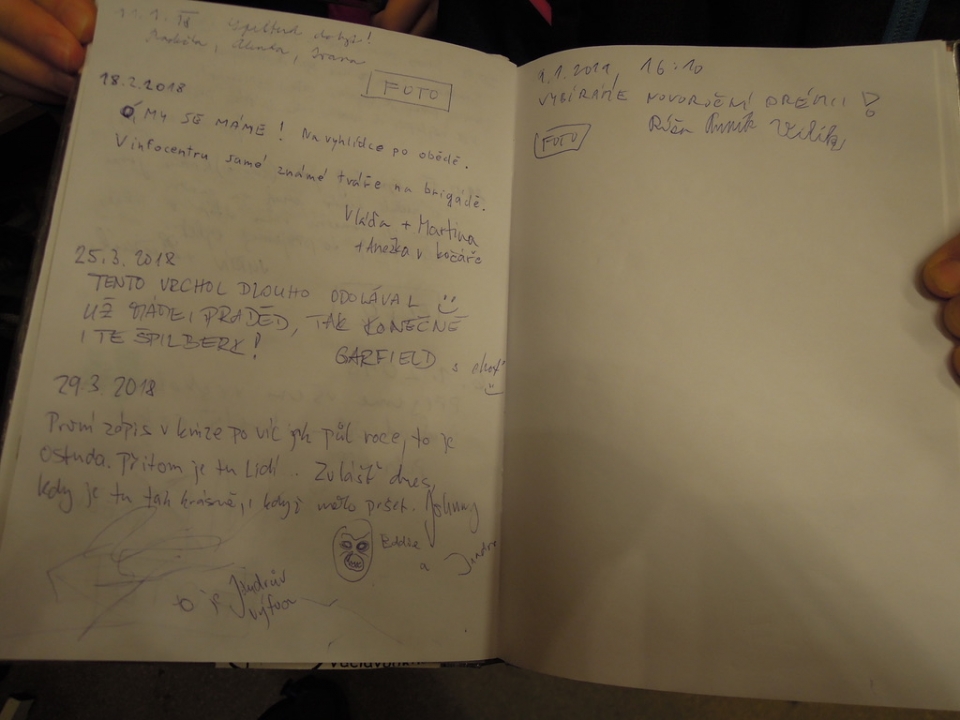 11.1.18. Špilberk dobyt!
Markéta, Alenka, Ivana
FOTO
18.2.2018
MY SE MÁME! Na vyhlídce po obědě.
V infocentru samé známé tváře na brigádě.
Vláďa + Martina
+ Anežka v kočáře
25.3.2018
TENTO VRCHOL DLOUHO ODOLÁVAL
UŽ PRADĚD, TAK KONEČNĚ
I TE ŠPILBERK!
GARFIELD s
29.3.2018
První zápis v knize po víc jak půl roce, to je
ostuda. Přitom je tu lidí. Zvlášť dnes,
kdy je tu tak krásněji když mělo pršet. Johnny
Eddie
a Jindra
to je Jindrův
výtvor
1.1.2019, 16:10
VYBÍRÁME NOVOROČNÍ PRÉMII!
FOTO